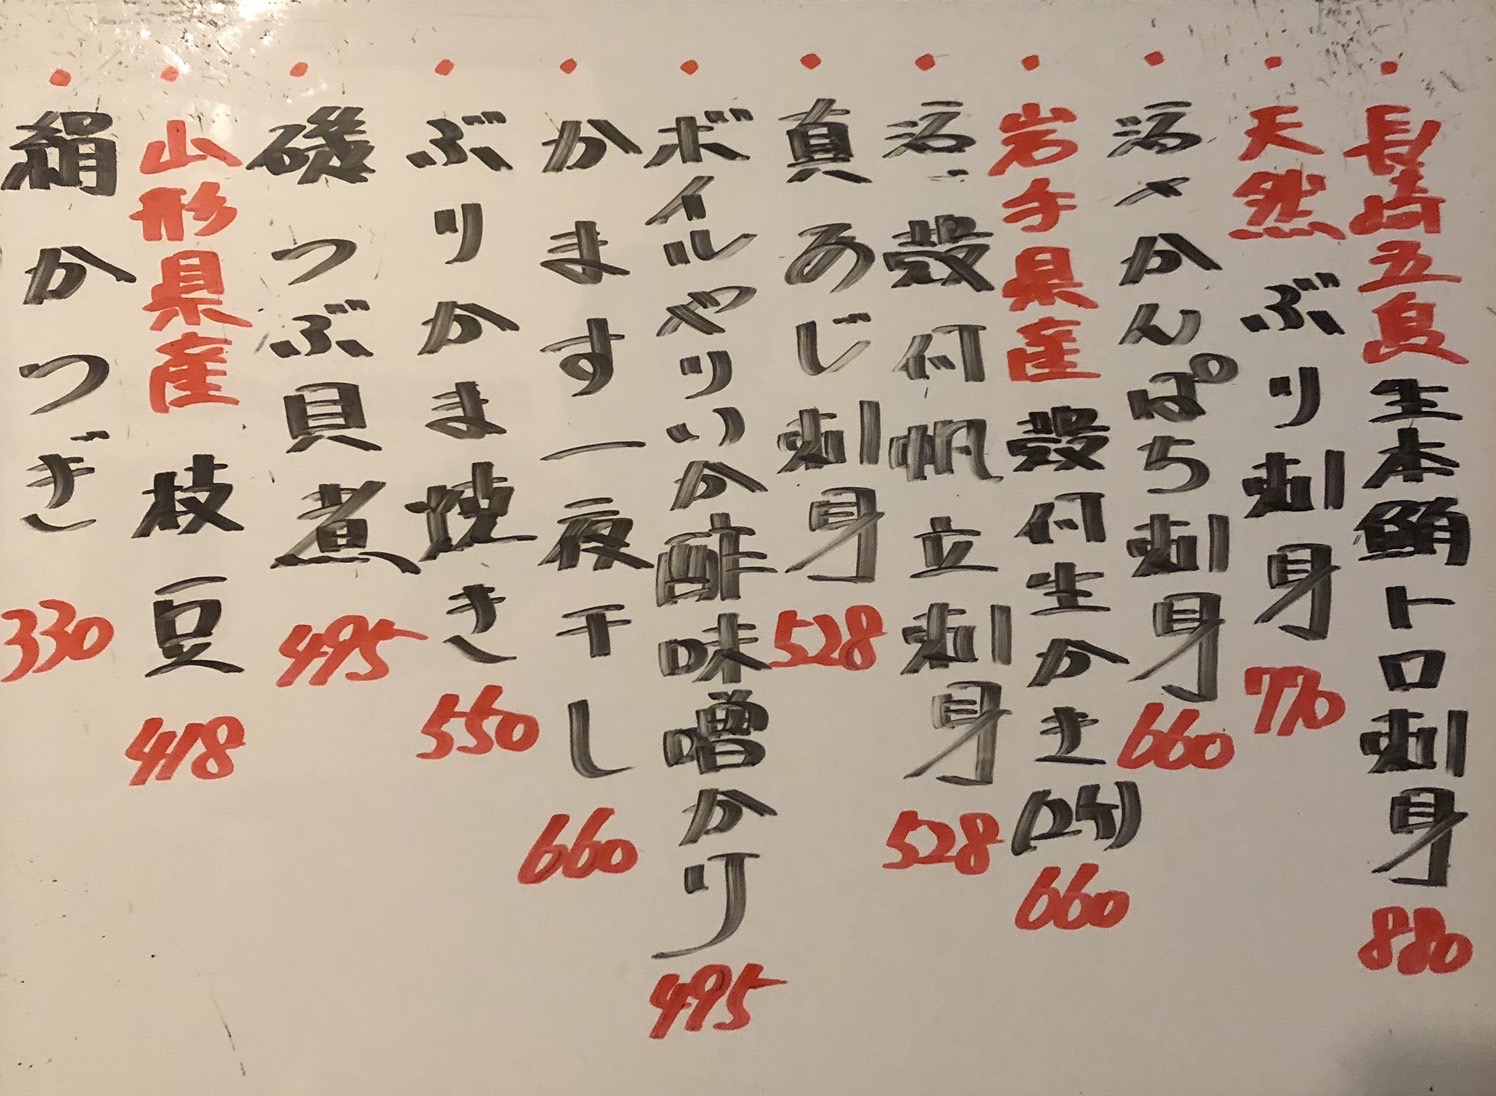 ・長崎五島生本鮪トロ刺身 880
・天然ぶり刺身 770
・活〆かんぱち刺身 660
・岩手県産殻付生かき(2ケ) 660
・活殻付帆立刺身 528
・真あじ刺身 528
・ボイルやりいか酢味噌かけ 495
・かます一夜干し 660
・ぶりかま焼き 550
・磯つぶ貝煮 495
・山形県産枝豆 418
・絹かつぎ 330